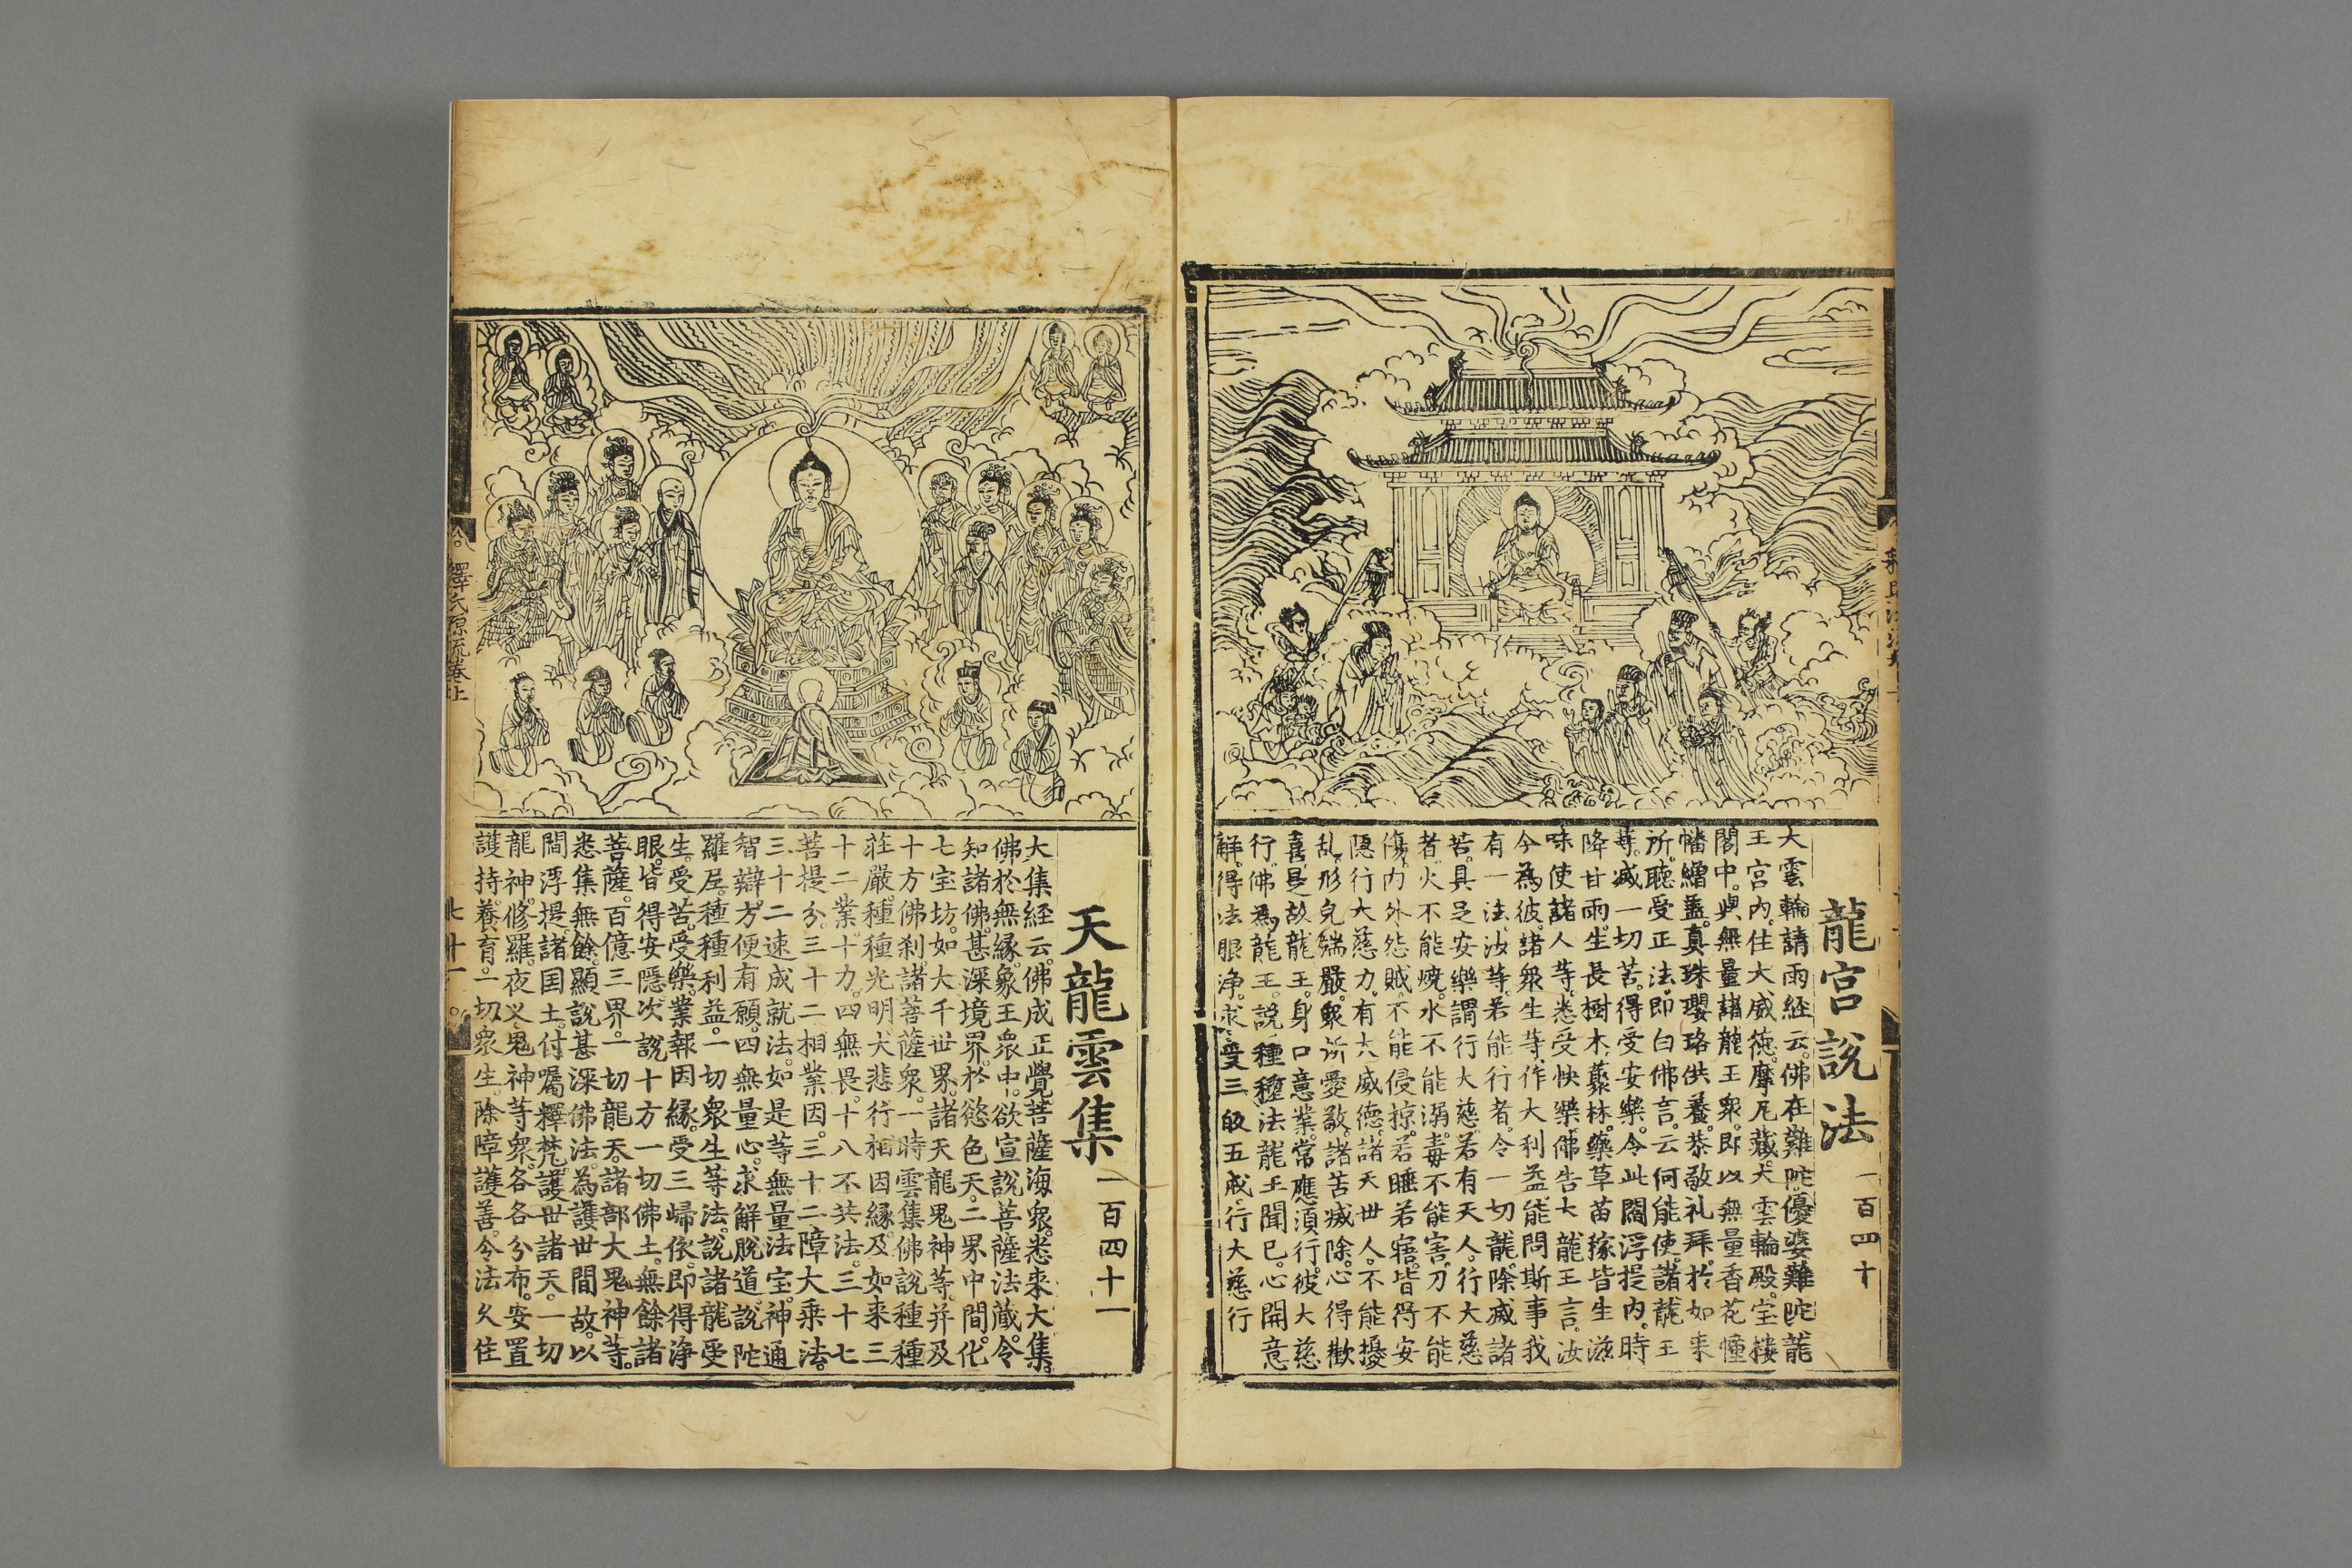 龍宮說法 一百四十
大雲輪請雨経云。佛在難陀優婆難陀龍
王宮内。住大威徳。摩尼藏。大雲輪殿。宝楼
閣中。與無量諸龍王衆。即以無量香花幢
幡繒盖。真珠瓔珞供養。恭敬礼拜。於如来
所。聴受正法。即白佛言。云何能使。諸龍王
等。滅一切苦。得受安樂。令此閻浮提内。時
降甘雨。生長樹木。藂林。藥草苗稼皆生滋
味使諸人等。悉受快樂。佛告大龍王言。汝
今為彼。諸衆生等。作大利益。能問斯事我
有一法。汝等。若能行者。令一切龍。除滅諸
苦。具足安樂。謂行大慈。若有天人。行大慈
者。火不能燒。水不能溺。毒不能害。刀不能
傷。内外怨賊。不能侵掠。若睡若寤。皆得安
隠。行大慈力。有大威德。諸天世人。不能擾
乱。形皃端嚴。衆所愛敬。諸苦滅除。心得歡
喜。是故龍王。身口意業。常應須行。彼大慈
行。佛為龍王。說種種法龍王聞已。心開意
解。得法眼浄。求受三皈五戒。行大慈行
天龍雲集 一百四十一
大集経云。佛成正覺。菩薩海衆。悉来大集。
佛於無縁。象王衆中。欲宣說菩薩法蔵。令
知諸佛。甚深境界。於慾色天。二界中間。化
七宝坊。如大千世界。諸天龍鬼神等。并及
十方佛刹。諸菩薩衆。一時雲集。佛說種種
莊嚴。種種光明大悲行相因縁。及如来三
十二業。十力。四無畏。十八不共法。三十七
菩提分。三十二相業因。三十二障大乘法。
三十二速成就法。如是等無量法宝。神通
智辯。方便有願。四無量心。求解脫道。說陀
羅尼。種種利益。一切衆生等法。說諸龍受
生。受苦。受樂。業報因縁。受三歸依。即得浄
眼。皆得安隱。次說十方一切佛土。無餘諸
菩薩。百億三界。一切龍天。諸部大鬼神等。
悉集無餘。顯說甚深佛法。為護世間故。以
閻浮提。諸国土。付囑釋梵。護世諸天。一切
龍神。修羅。夜乂鬼神等衆。各各分布。安置
護持。養育。一切衆生。除障護善。令法久住
釋氏源流卷上
七十一